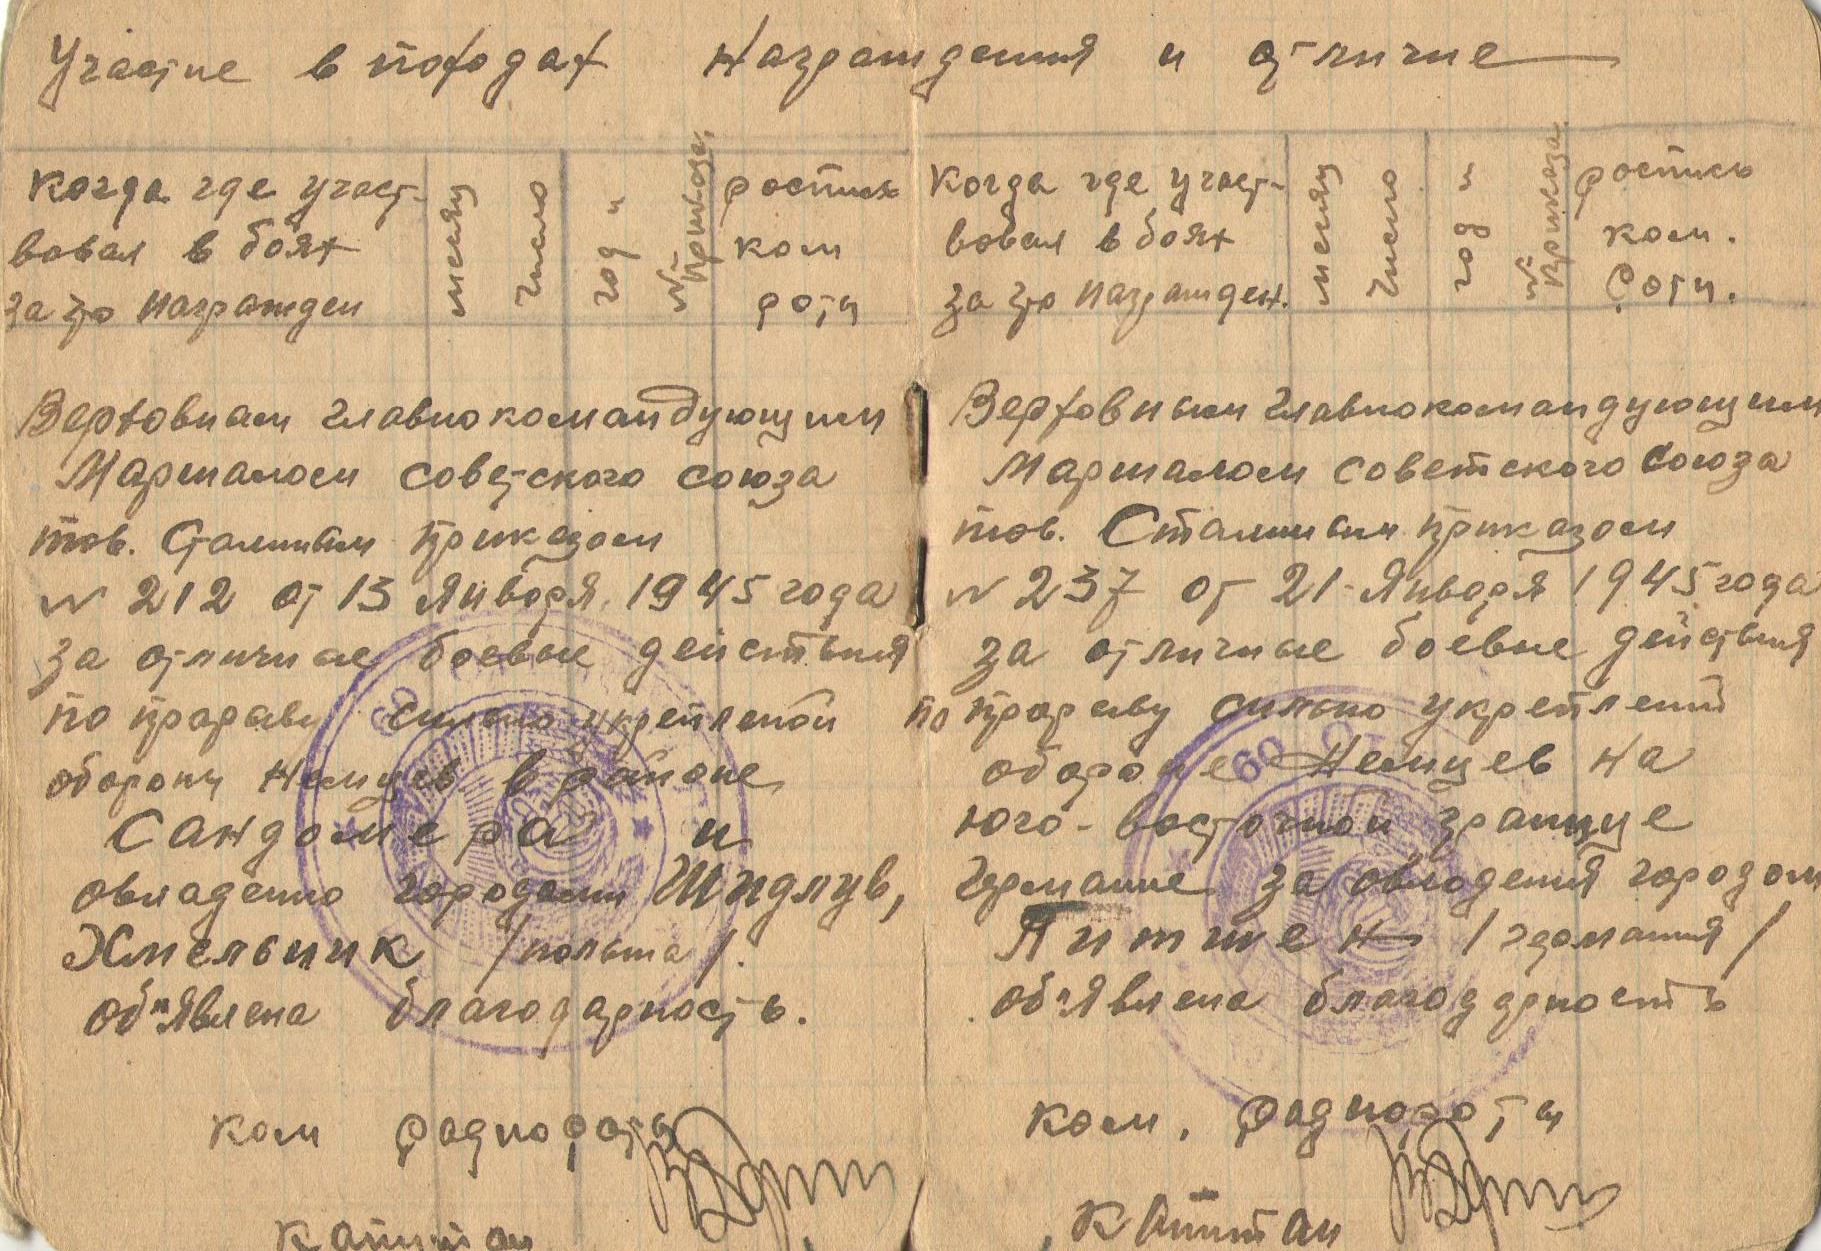 Участие в походах Награждения и отличие
Когда где участ-
вовал в боях
за что награжден
месяц
число
год и
№ приказа
роспись
ком
роты
Верховнам главнокомандующим
Маршалом советского союза
тов. Сталиным приказом
№ 212 от 13 Января 1945 года
за отличные боевые действия
по прорыву сильно укрепленой
обороны Немцев в районе
Сандомера и
овладению городами Шидлув,
Хмельник /польша/.
об"явлена благодарность.
ком радиороты
Капитан
Когда где участ-
вовал в боях
за что награжден.
месяц
число
год и
№ приказа
роспись
ком.
роты.
Верховным главнокомандующим
Маршалом советского Союза
тов. Сталиным приказом
№ 237 от 21-Января 1945 года
за отличные боевые действия
по прорыву сильно укреплений
обороне Немцев на
юго-восточной границе
Германие за овлодения городом
Питшен /германия/
об"явлена благодарность
ком. радиороты
Капитан
60
60